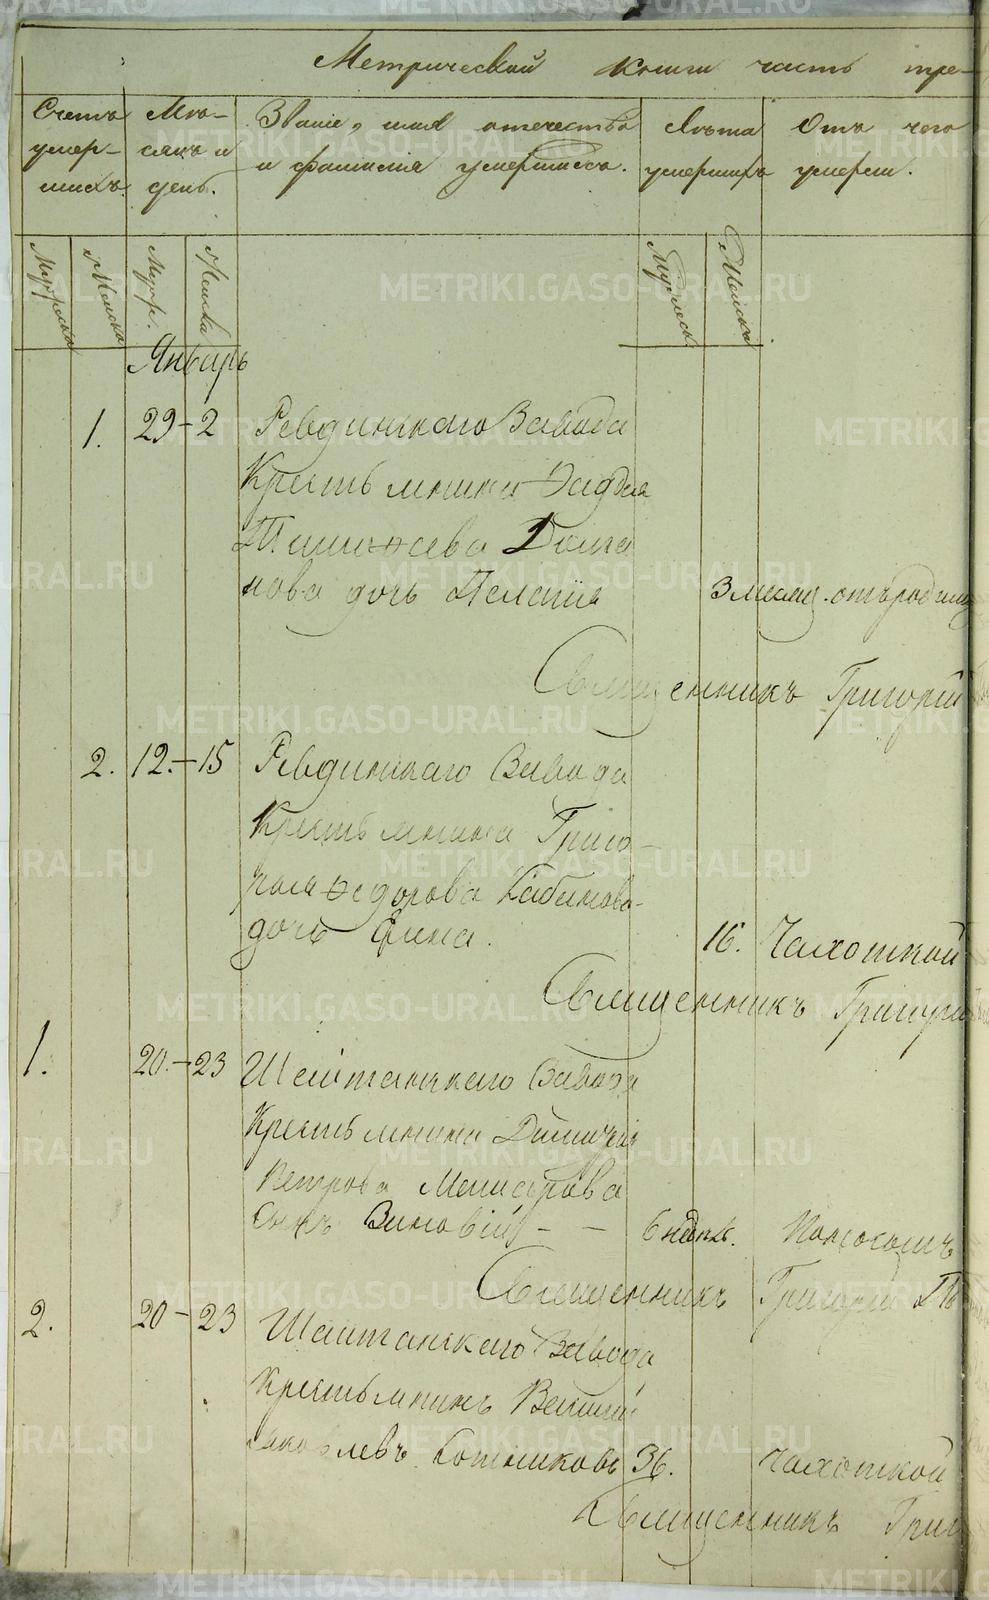 Метрической книги часть тре-
Счетъ умер-шихъ.
Мѣ-сяцъ и день.
Званіе, имя отечество и фамилія умершихъ.
Лѣта умершихъ
Отъ чего умерли.
Мужеска
Женска
Муж.
Женска
Мужескъ
Женска
Январь
1. 29-2 Ревдинскаго Завода
Крестьянина
дочь Пелагія 3 месяц. отъ родимц
Священникъ Григорій
2. 12.-15 Ревдинскаго Завода
Крестьянина Григо-
рья Ѳедорова Кабанова
дочь Анна. 16. Чахоткой
Священникъ Григорій
1. 20.-23 Шайтанскаго Завода
Крестьянина Димитрія
Петрова
Сынъ Зиновій - - 6 недѣль. Поносомъ
Священникъ Григорій
2. 20-23 Шайтанскаго Завода
Крестьянинъ
Яковлевъ Котниковъ 36. Чахоткой
Священникъ Григ
METRIKI.GASO-URAL.RU